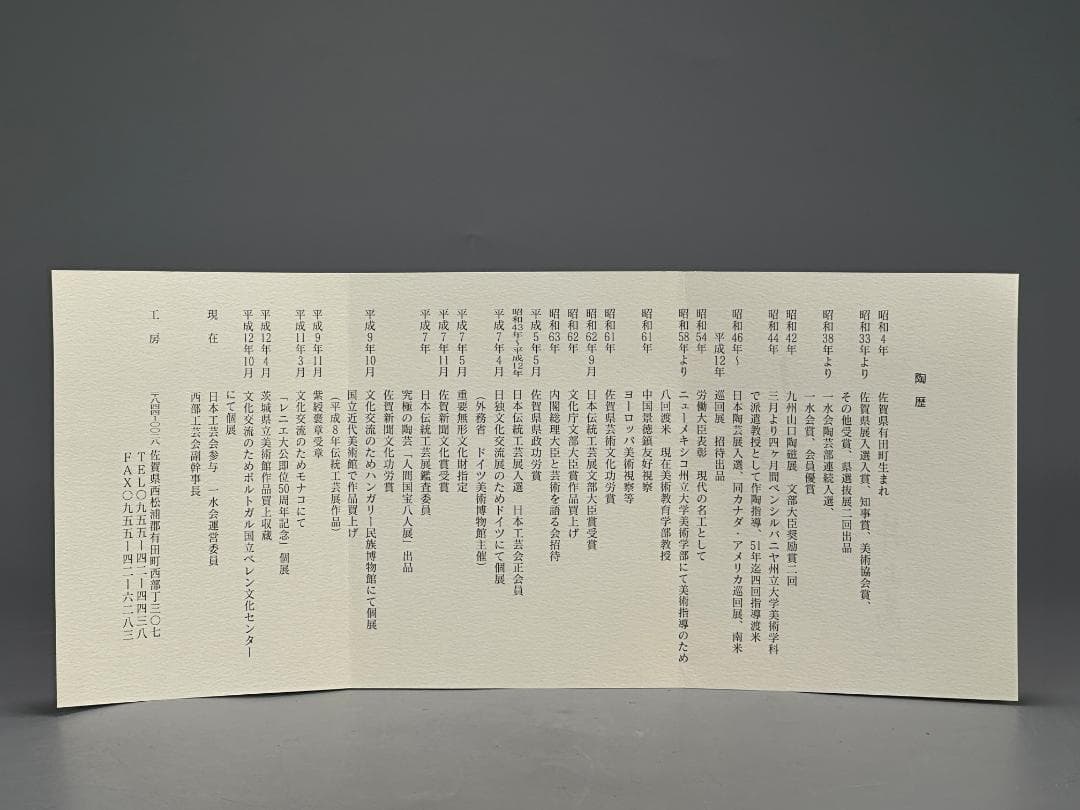 陶歴
昭和4年 佐賀県有田町生まれ
昭和33年より 佐賀県展入選入賞、知事賞、美術協会賞、
その他受賞、県選抜展二回出品
昭和38年より 一水会陶芸部連続入選、
一水会賞、会員優賞
昭和42年 九州山口陶磁展 文部大臣奨励賞二回
昭和44年 三月より四ヶ月間ペンシルバニヤ州立大学美術学科
で派遣教授として作陶指導、51年迄四回指導渡米
昭和46年〜 日本陶芸展入選、同カナダ・アメリカ巡回展、南米
平成12年 巡回展 招待出品
昭和54年 労働大臣表彰 現代の名工として
昭和58年より ニューメキシコ州立大学美術学部にて美術指導のため
八回渡米 現在美術教育学部教授
昭和61年 中国景徳鎮友好視察
ヨーロッパ美術視察等
昭和61年 佐賀県芸術文化功労賞
昭和62年9月 日本伝統工芸展文部大臣賞受賞
昭和62年 文化庁文部大臣賞作品買上げ
昭和63年 内閣総理大臣と芸術を語る会招待
平成5年5月 佐賀県県政功労賞
昭和43年〜平成12年 日本伝統工芸展入選 日本工芸会正会員
平成7年4月 日独文化交流展のためドイツにて個展
(外務省 ドイツ美術博物館主催)
平成7年5月 重要無形文化財指定
平成7年11月 佐賀新聞文化賞受賞
平成7年 日本伝統工芸展鑑査委員
究極の陶芸「人間国宝八人展」出品
佐賀新聞文化功労賞
平成9年10月 文化交流のためハンガリー民族博物館にて個展
国立近代美術館で作品買上げ
(平成8年伝統工芸展作品)
平成9年11月 紫綬褒章受章
平成11年3月 文化交流のためモナコにて
「レニエ大公即位50周年記念」個展
平成12年4月 茨城県立美術館作品買上収蔵
平成12年10月 文化交流のためポルトガル国立ベレン文化センター
にて個展
現在 日本工芸会参与 一水会運営委員
西部工芸会副幹事長
工房 〒八四四-〇〇二八 佐賀県西松浦郡有田町西部丁三〇七
TEL〇九五五ー四二ー四四三八
FAX〇九五五ー四二ー六二八三